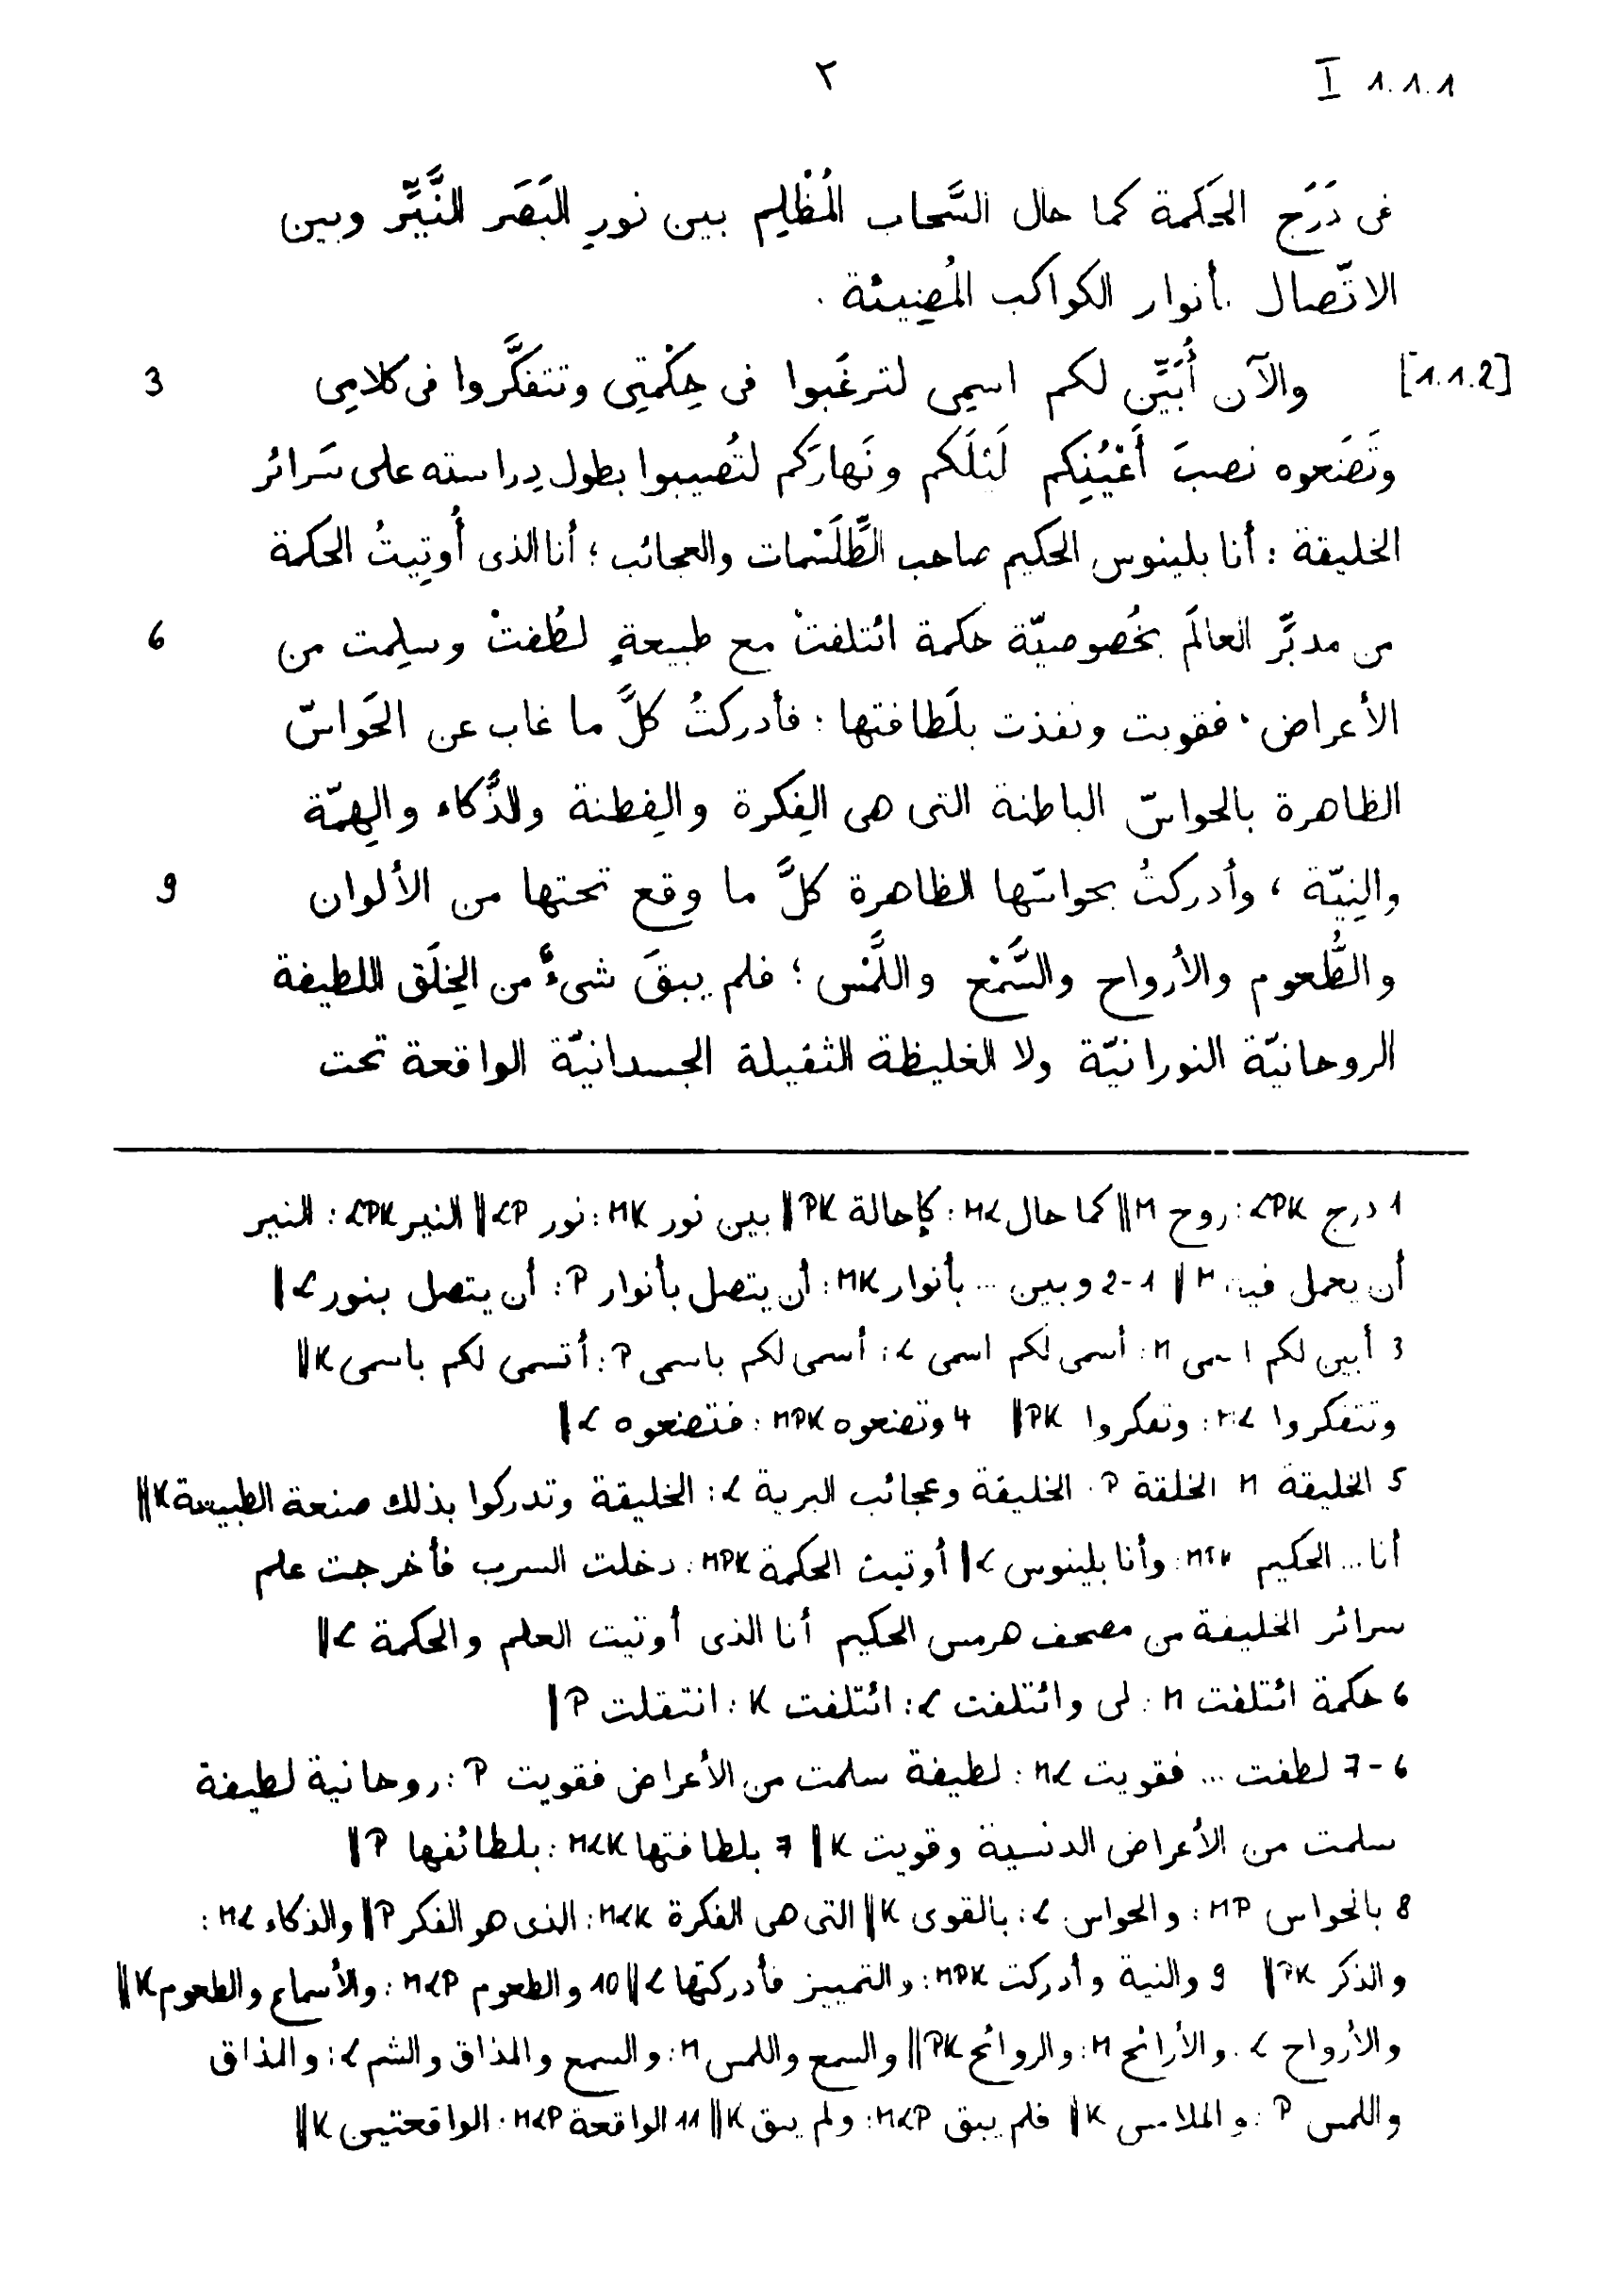 I 1.1.1
٢
فى دَرَج الحَكمة كما حال السَّحاب المُظْلِم بين نورِ البَصَر النَّيِّر وبين
الاتّصال بأنوار الكواكب المُضِيئة .
[1.1.2] والآن أُبَيِّن لكم اسمِى لترغَبوا فى حِكْمتِى وتتفكَّروا فى كلامِى 3
وتَضَعوه نصبَ أَعْيُنِكم لَيْلَكم ونَهارَكم لتُصيبوا بطول دِراسته على سَرائر
الخليقة : أنا بلينوس الحكيم صاحب الطِّلَّسْمات والعجائب ؛ أنا الذى أُوتِيتُ الحكمة
من مدبِّر العالَم بخُصوصيّة حكمة ائتلفتْ مع طبيعةٍ لطُفتْ وسلِمت من 6
الأعراض ، فقويت ونفذت بلَطافتها ؛ فأدركتُ كلَّ ما غاب عن الحَواسّ
الظاهرة بالحواسّ الباطنة التى هى الفِكرة والفِطنة والذَّكاء والهِمّة
والنِيّة ، وأدركتُ بحواسّها الظاهرة كلَّ ما وقع تحتها من الألوان 9
والطُّعوم والأرواح والسَّمْع واللَّمْس ؛ فلم يبقَ شىءٌ من الخِلَق اللطيفة
الروحانيّة النورانيّة ولا الغليظة الثقيلة الجسدانيّة الواقعة تحت
1 درج LPK : روح M || كما حال ML : كإحالة PK || بين نور MK : نور LP || النير LPK : النير
أن يعمل فيه M || 1-2 وبين ... بأنوار MK : أن يتصل بأنوار P : أن يتصل بنور L ||
3 أبين لكم اسمى M : أسمى لكم اسمى L : أسمى لكم باسمى P : أتسمى لكم باسمى K ||
وتتفكروا ML : وتفكروا PK || 4 وتضعوه MPK : فتضعوه L ||
5 الخليقة M الخلقة P : الخليقة وعجائب البرية L : الخليقة وتدركوا بذلك صنعة الطبيعة K ||
أنا ... الحكيم MPK : وأنا بلينوس L || أوتيت الحكمة MPK : دخلت السرب فأخرجت علم
سرائر الخليقة من مصحف هرمس الحكيم أنا الذى أوتيت العلم والحكمة L ||
6 حكمة ائتلفت M : لى وائتلفت L : ائتلفت K : انتقلت P ||
6-7 لطفت ... فقويت ML : لطيفة سلمت من الأعراض فقويت P : روحانية لطيفة
سلمت من الأعراض الدنسية وقويت K || 7 بلطافتها MLK : بلطائفها P ||
8 بالحواس MP : والحواس L : بالقوى K || التى هى الفكرة MLK : الذى هو الفكر P || والذكاء ML :
والذكر PK || 9 والنية وأدركت MPK : والتمييز فأدركتها L || 10 والطعوم MLP : والأسماع والطعوم K ||
والأرواح L : والأرائح M : والروائح PK || والسمع واللمس M : والسمع والمذاق والشم L : والمذاق
واللمس P : والملامس K || فلم يبق MLP : ولم يبق K || 11 الواقعة MLP : الواقعتين K ||